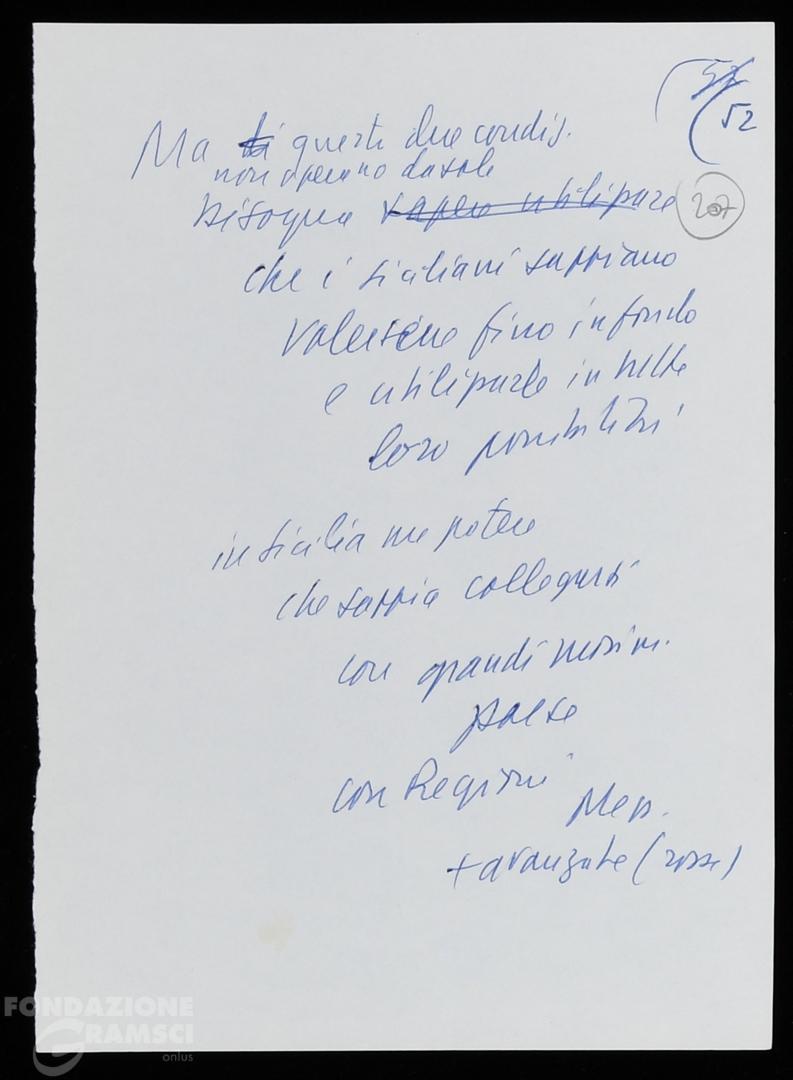 52
207
Ma queste due condiz.
non operano da sole
bisogna sapere utilizzare
che i siciliani sappiano
valersene fino in fondo
e utilizzarle in tutte
loro possibilità
in Sicilia un potere
che sappia collegarsi
con grandi movim.
paese
con Regioni
+ avanzate (rosse)
FONDAZIONE
GRAMSCI
onlus